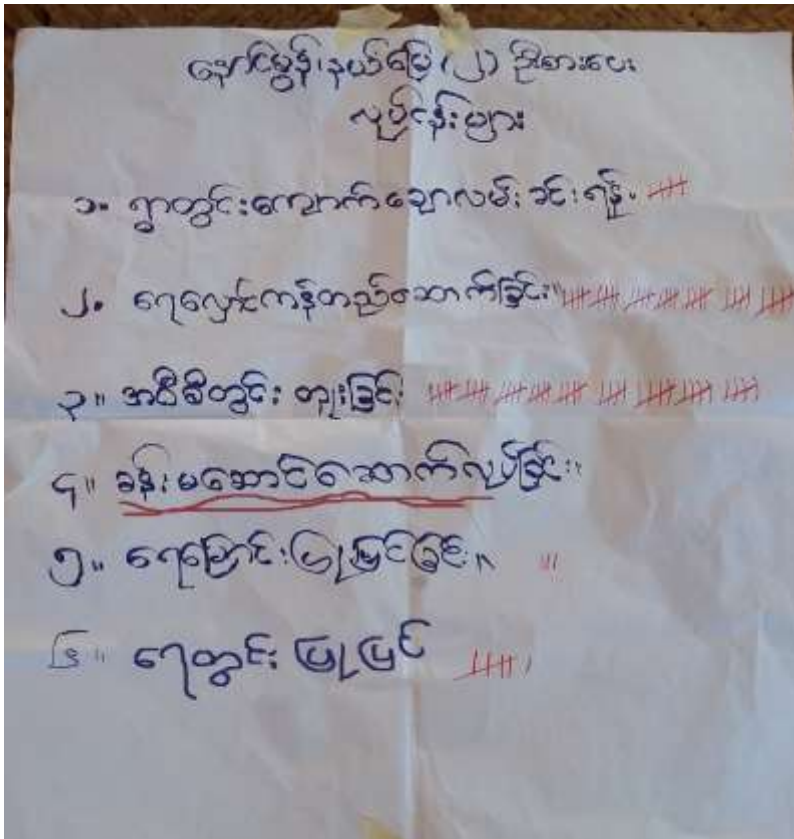 နောင်မွန်၊ နယ်မြေ (၂) ဦးစားပေး
လုပ်ငန်းများ
၁။ ရွာတွင်းကျောက်ချောလမ်းခင်းရန်။
၂။ ရေလှောင်ကန်တည်ဆောက်ခြင်း။
၃။ အဝီစိတွင်း တူးခြင်း
၄။ ခန်းမဆောင်ဆောက်လုပ်ခြင်း။
၅။ ရေမြောင်းပြုပြင်ခြင်း။
၆။ ရေတွင်း ပြုပြင်